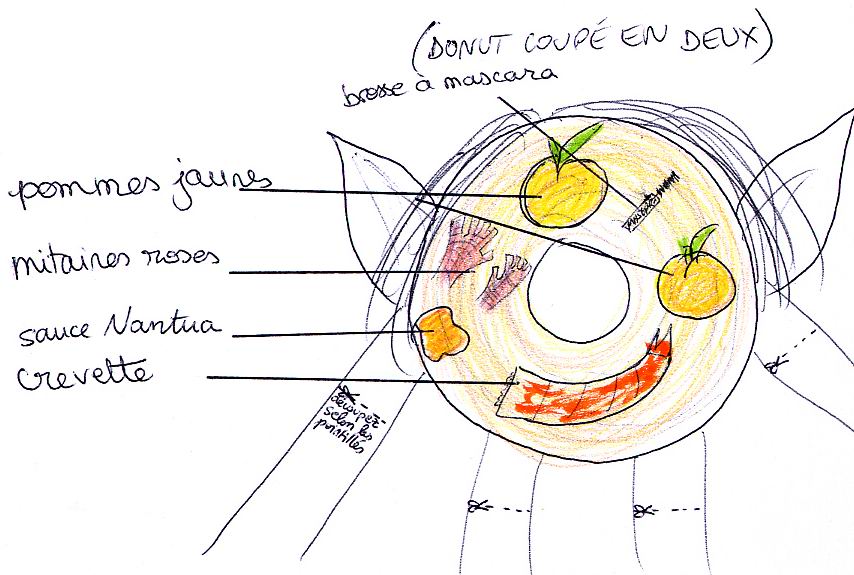 (DONUT COUPÉ EN DEUX)
brosse à mascara
pommes jaunes
mitaines roses
sauce Nantua
Crevette
découpez
selon les
pointillés